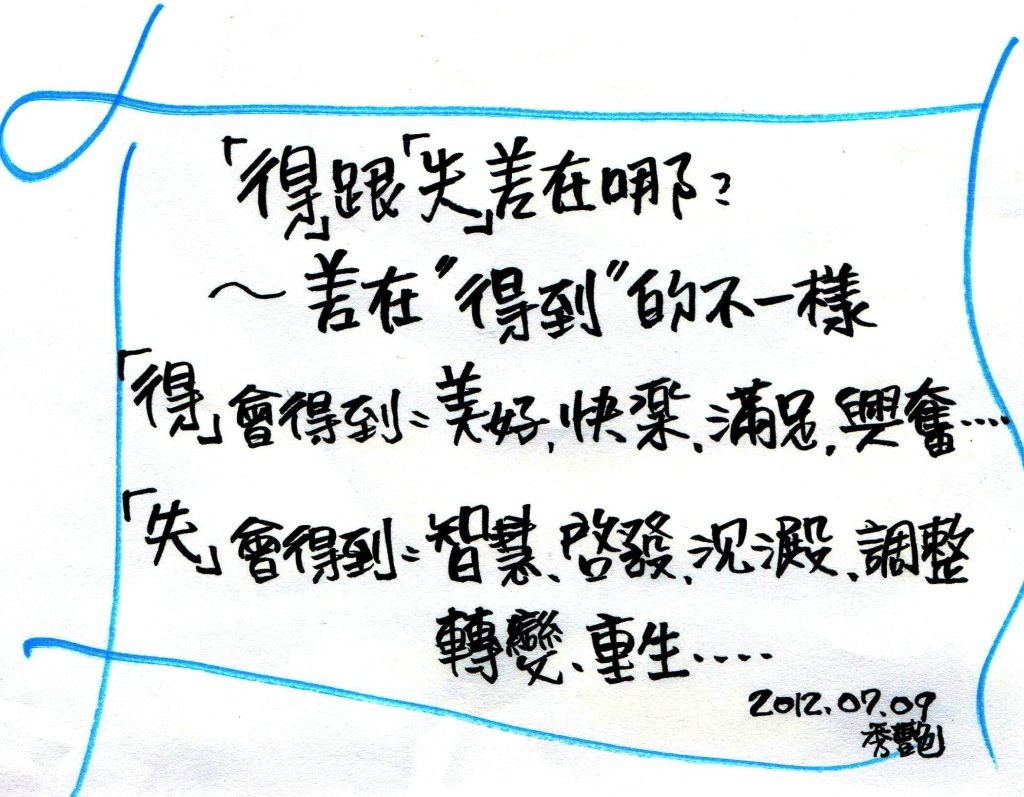 「得」跟「失」差在哪?
～差在"得到"的不一樣
「得」會得到:美好,快樂、滿足,興奮....
「失」會得到:智慧、啓發、沉澱、調整
轉變、重生.....
2012.07.09
秀艷